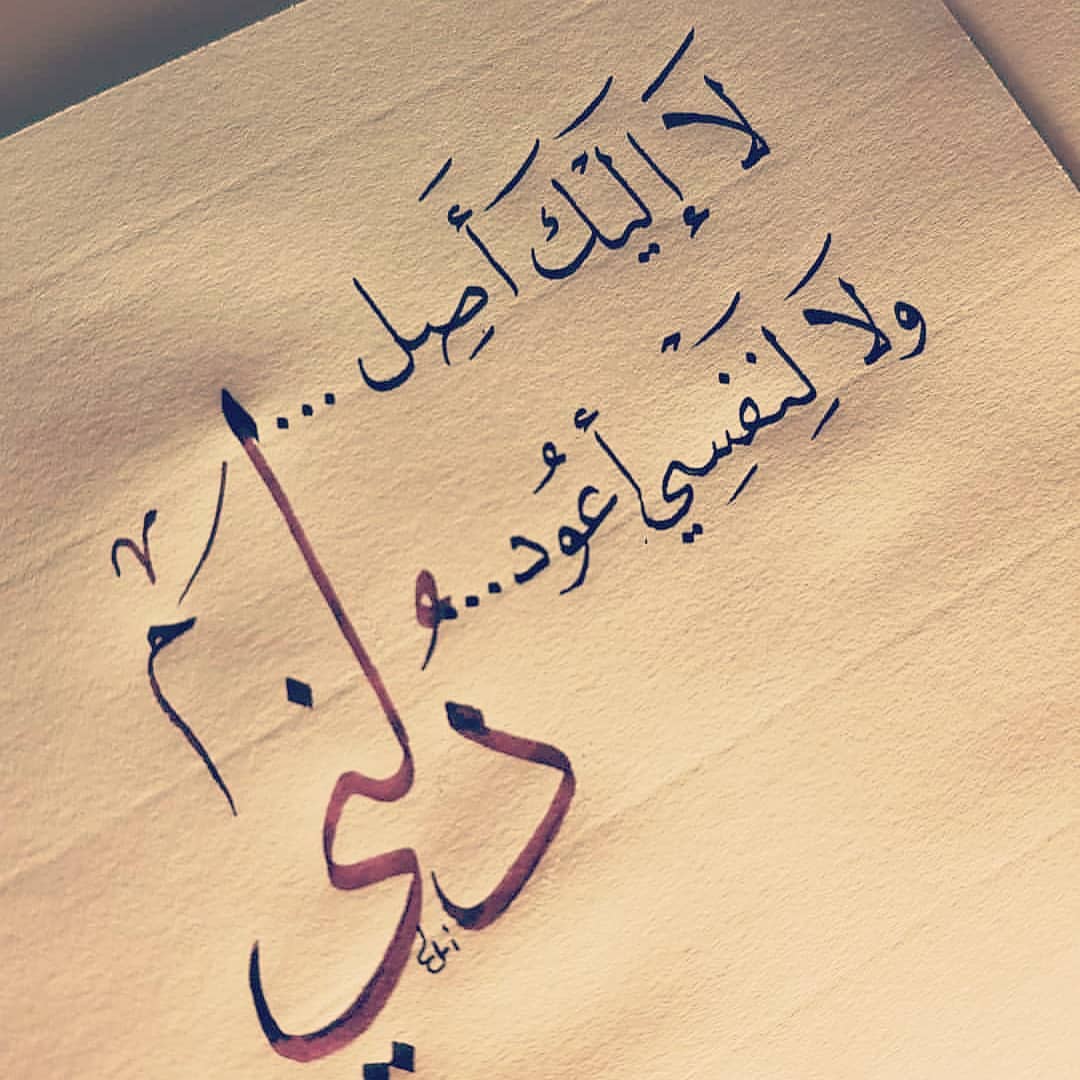 لَا إِلَيْكَ أَصِل...
ولَا لِنَفْسِي أَعُود...
دُلني